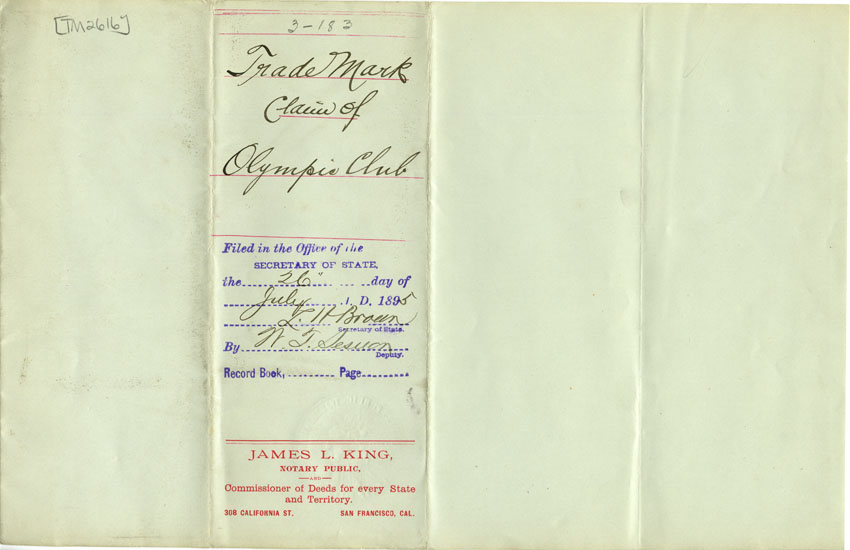 [TM2616]
3-183
Trade Mark
Claim of
Olympic Club
Filed in the Office of the
SECRETARY OF STATE,
the 26" day of
July A. D. 1895
L. H. Brown
Secretary of State.
By W. T. Sesnon
Deputy.
Record Book, Page
JAMES L. KING,
NOTARY PUBLIC,
AND
Commissioner of Deeds for every State
and Territory.
308 CALIFORNIA ST. SAN FRANCISCO, CAL.